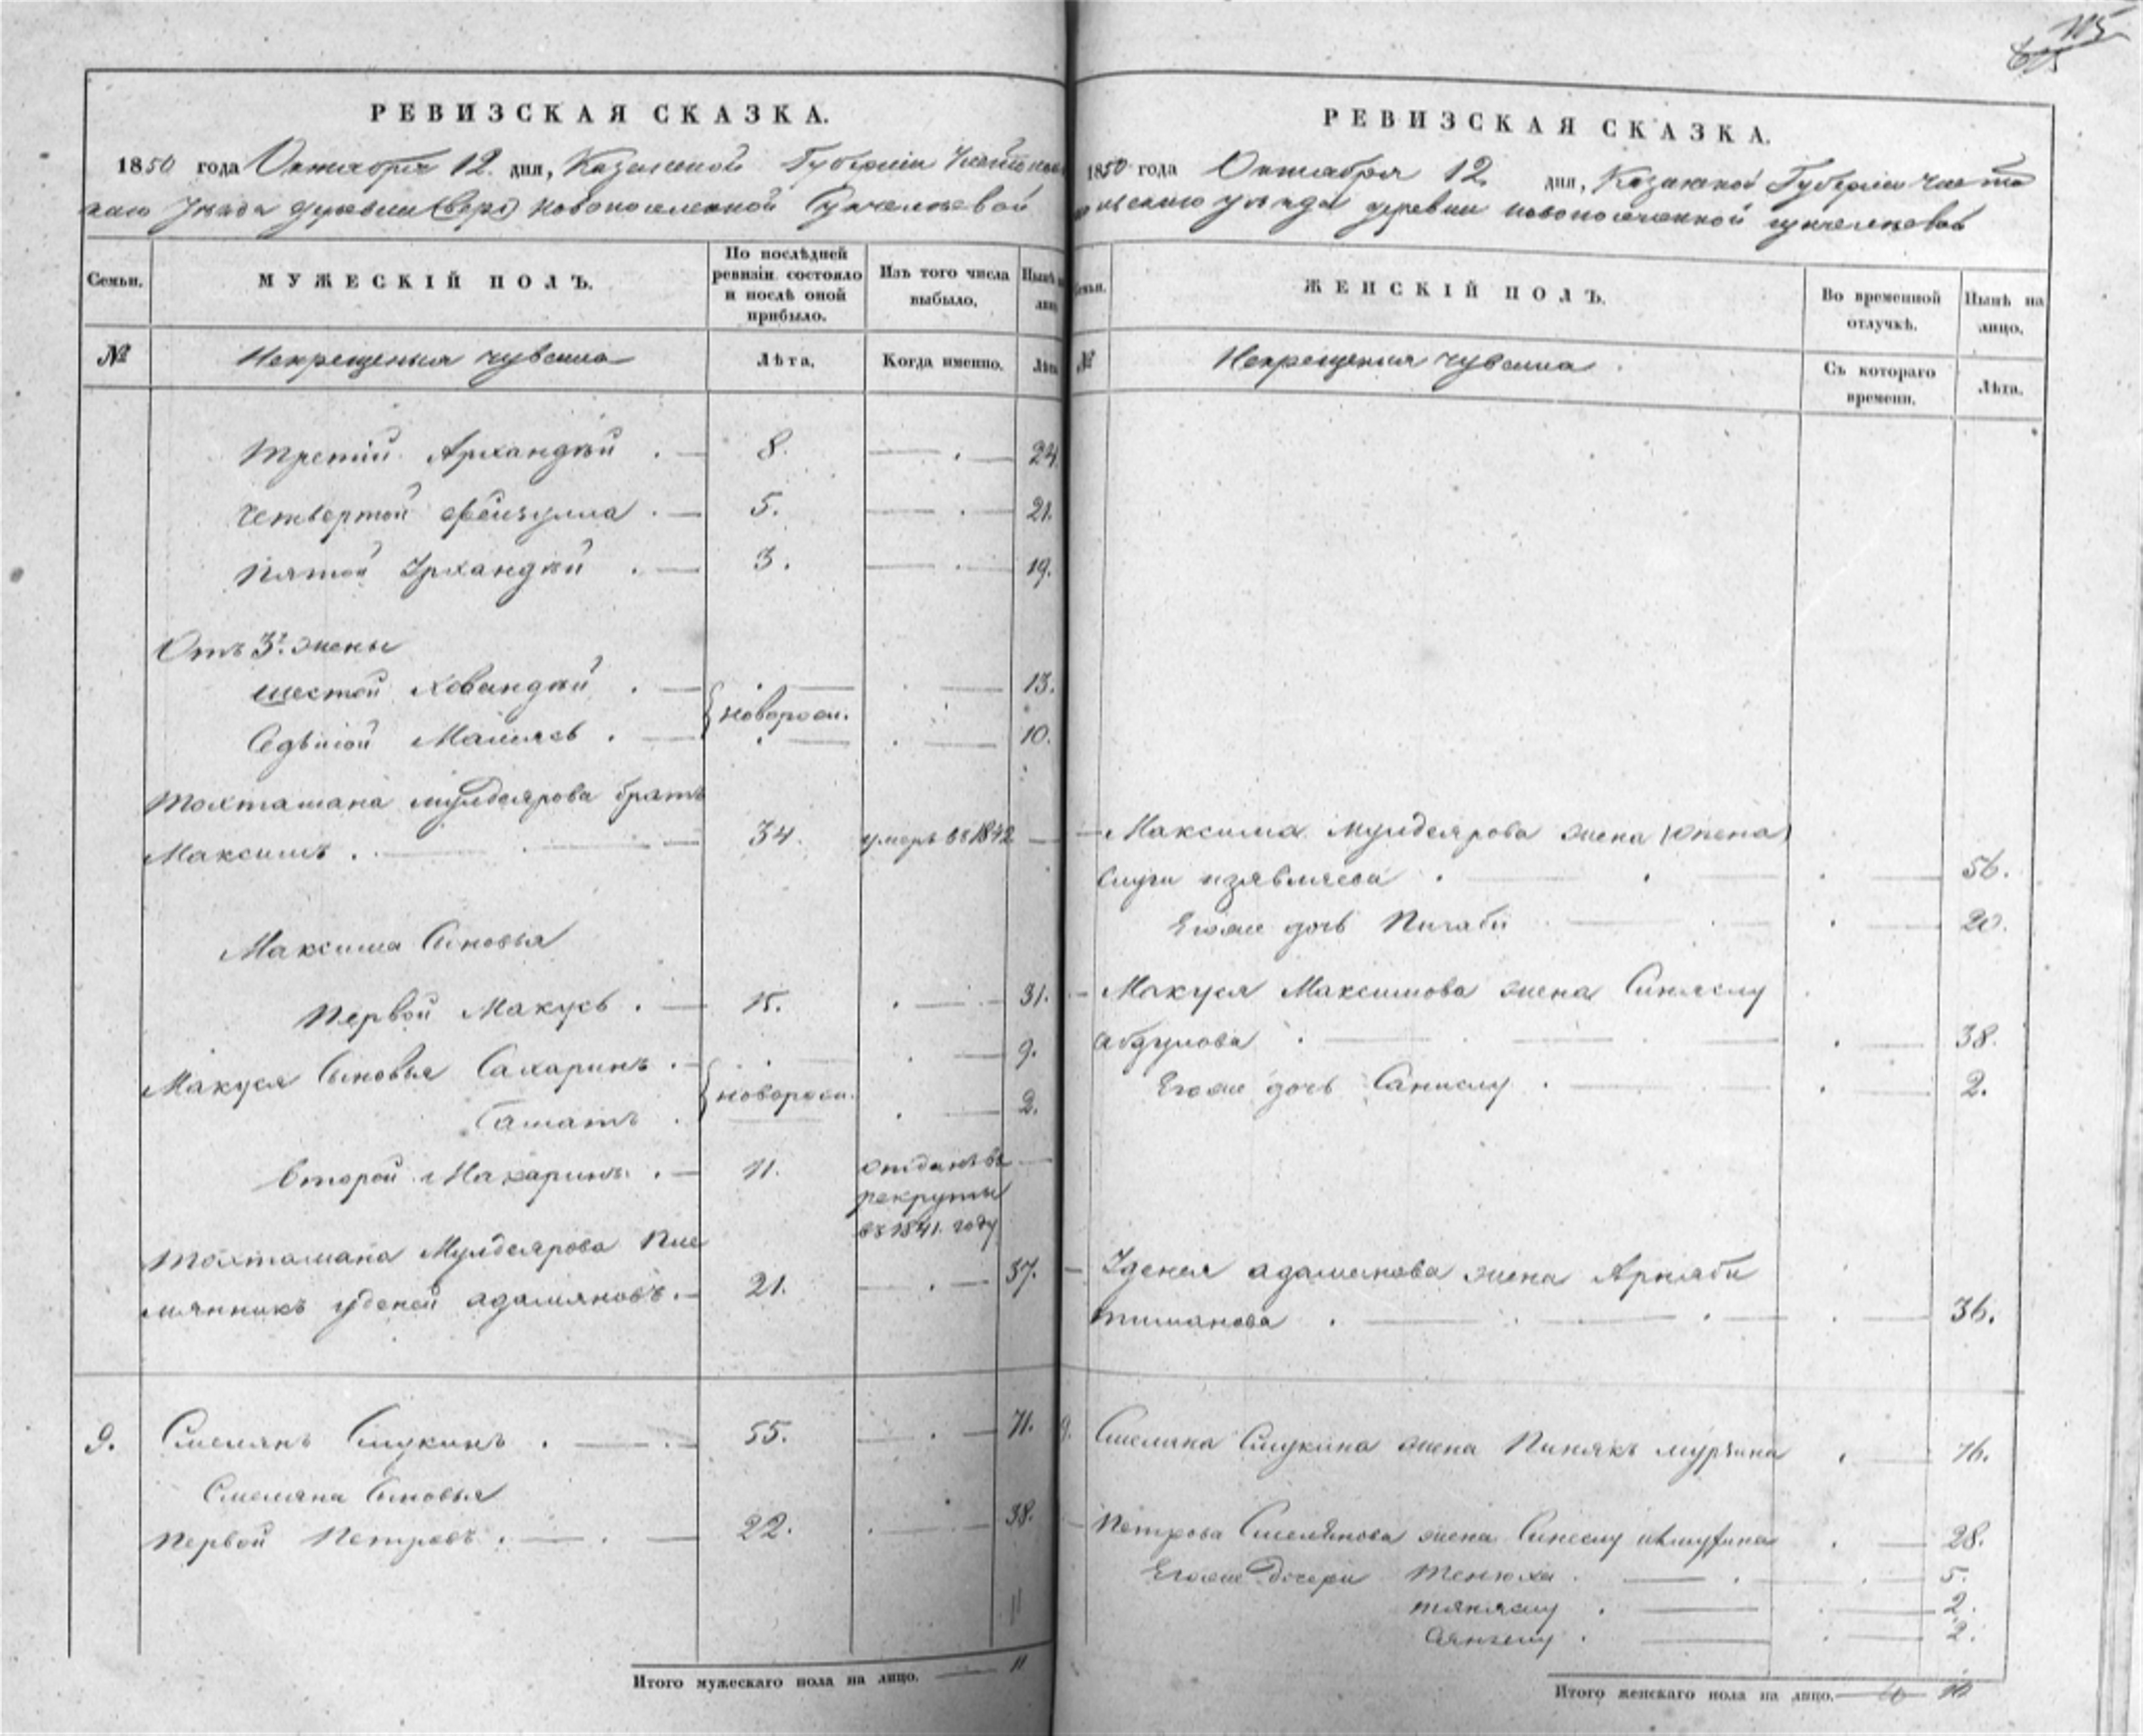 115
РЕВИЗСКАЯ СКАЗКА.
1850 года Октября 12. дня, Казанской Губерніи
Уезда деревни новопоселенной
Семьи. МУЖЕСКІЙ ПОЛЪ. По послѣдней ревизіи состояло и послѣ оной прибыло. Изъ того числа выбыло. Нынѣ на лицо.
№ Некрещеныя чуваша Лѣта. Когда именно. Лѣта.
Третій Архандѣй 8. 24.
Четвертой Фейзулла 5. 21.
Пятой Ирхандѣй 3. 19.
Отъ 3й жены
шестой 13.
новорож.
Седьмой 10.
Тохтамана Мулдеярова братъ
Максимъ 34. умеръ въ 1842
Максима Сыновья
Первой Макусь 15. 31.
Макуся Сыновья Сахаринъ 9.
новорож.
Саматъ 2.
Второй Махаринъ 11. отданъ въ
рекруты
въ 1841. году
Тохтамана Мулдеярова Пле
мянникъ Адамяновъ 21. 37.
9. Смелянъ Слукинъ 55. 71.
Смеляна Сыновья
Первой Петровъ 22. 38.
Итого мужескаго пола на лицо. 11
РЕВИЗСКАЯ СКАЗКА.
1850 года Октября 12. дня, Казанской Губерніи Чисто
польскаго уезда деревни новопоселенной
Семьи. ЖЕНСКІЙ ПОЛЪ. Во временной отлучкѣ. Нынѣ на лицо.
№ Некрещеныя чуваша Съ котораго времени. Лѣта.
Максима Мулдеярова жена
56.
Егоже дочь Пичаби 20.
Макуся Максимова жена Синяслу
Абдулова 38.
Егоже дочь Санислу 2.
Адамянова жена Арняби
Тимянова 36.
9. Смеляна Слукина жена Пинякъ 76.
Петрова Смелянова жена Синеслу 28.
Егоже Дочери Тенюха 5.
Тяняслу 2.
2.
Итого женскаго пола на лицо. 10